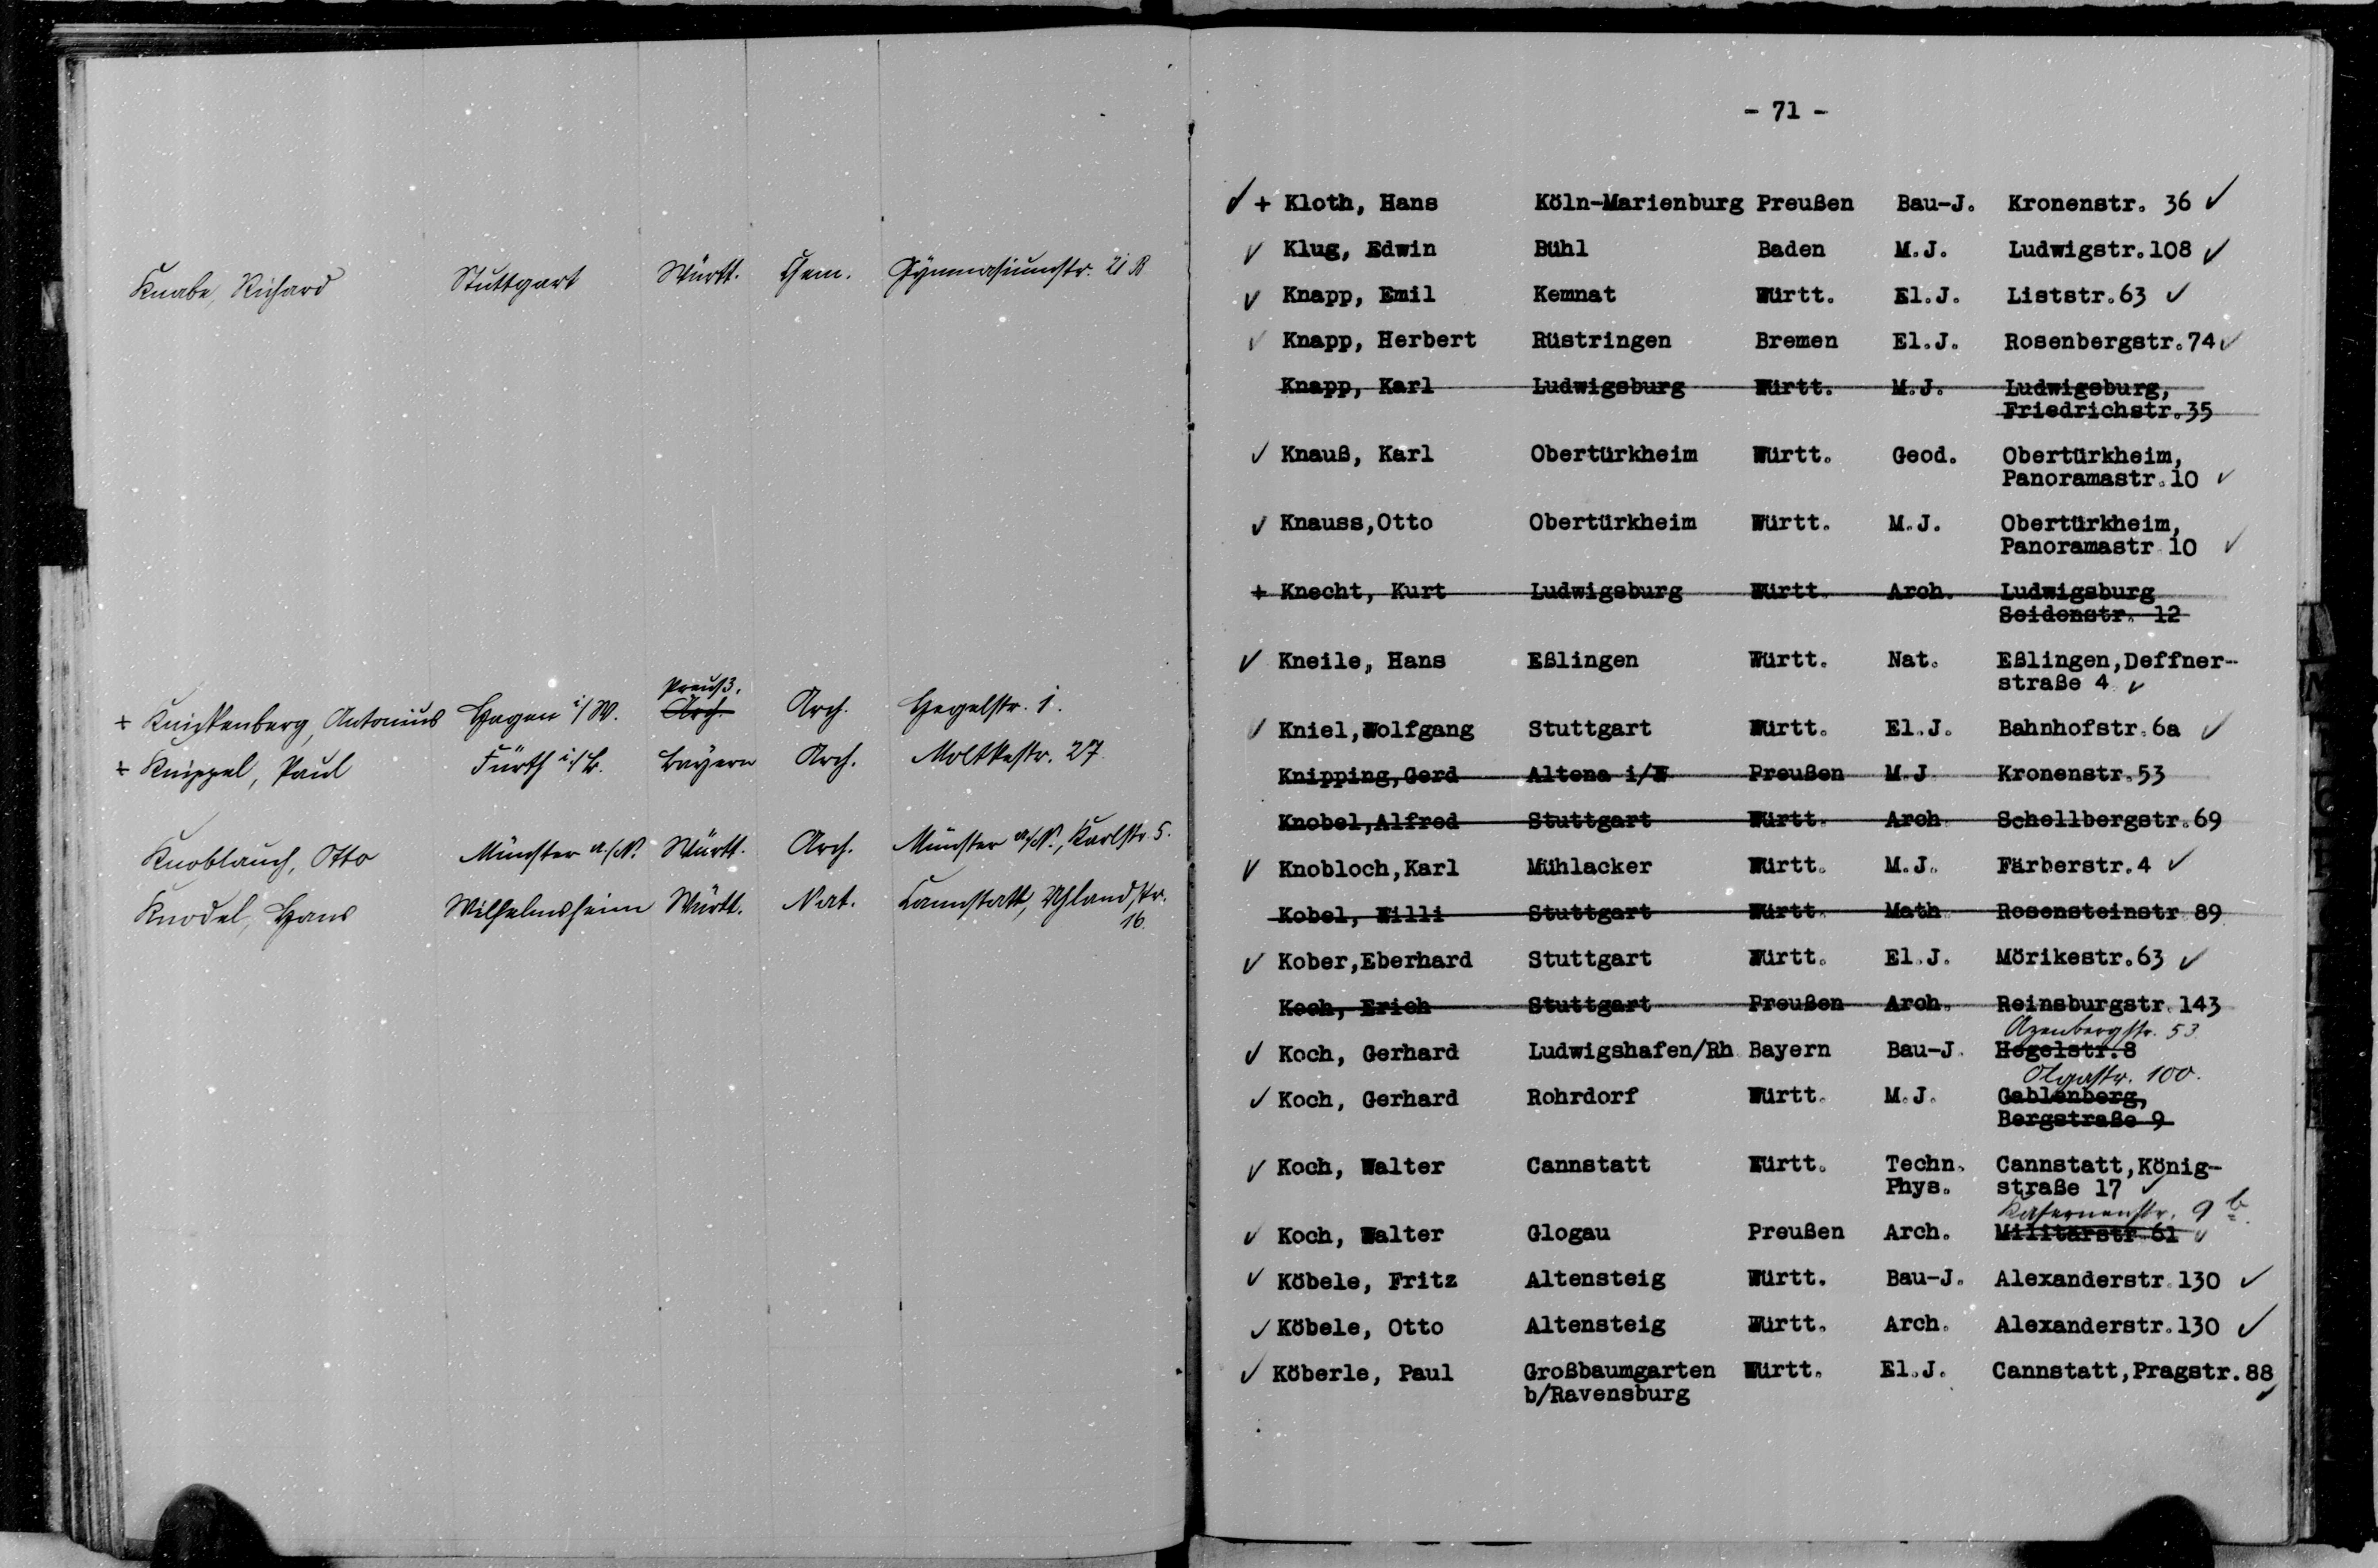 Knabe, Richard Stuttgart Württ. Chem. Gymnasiumstr. 21 R
+ Knickenberg, Antonius Hagen i/W. Preuß. Arch. Arch. Hegelstr. 1.
+ Knippel, Paul Fürth i/B. Bayern Arch. Moltkestr. 27
Knoblauch, Otto Münster a/N. Württ. Arch. Münster a/N., Karlstr. 5.
Knodel, Hans Wilhelmsheim Württ. Nat. Cannstatt, Uhlandstr.
16.
- 71 -
✓ + Kloth, Hans Köln-Marienburg Preußen Bau-J. Kronenstr. 36 ✓
✓ Klug, Edwin Bühl Baden M.J. Ludwigstr.108 ✓
✓ Knapp, Emil Kemnat Württ. El.J. Liststr.63 ✓
✓ Knapp, Herbert Rüstringen Bremen El.J. Rosenbergstr.74 ✓
Knapp, Karl Ludwigsburg Württ. M.J. Ludwigsburg,
Friedrichstr.35
✓ Knauß, Karl Obertürkheim Württ. Geod. Obertürkheim,
Panoramastr.10 ✓
✓ Knauss,Otto Obertürkheim Württ. M.J. Obertürkheim,
Panoramastr 10 ✓
+ Knecht, Kurt Ludwigsburg Württ. Arch. Ludwigsburg
Seidenstr. 12
✓ Kneile, Hans Eßlingen Württ. Nat. Eßlingen,Deffner-
straße 4 ✓
✓ Kniel,Wolfgang Stuttgart Württ. El.J. Bahnhofstr.6a ✓
Knipping,Gerd Altena i/W Preußen M.J Kronenstr.53
Knobel,Alfred Stuttgart Württ. Arch Schellbergstr.69
✓ Knobloch,Karl Mühlacker Württ. M.J. Färberstr.4 ✓
Kobel, Willi Stuttgart Württ. Math Rosensteinstr 89
✓ Kober,Eberhard Stuttgart Württ. El.J. Mörikestr.63 ✓
Koch, Erich Stuttgart Preußen Arch. Reinsburgstr.143
Azenbergstr. 53
✓ Koch, Gerhard Ludwigshafen/Rh Bayern Bau-J. Hegelstr.8
Olgastr. 100.
✓ Koch, Gerhard Rohrdorf Württ. M.J. Gablenberg,
Bergstraße 9
✓ Koch, Walter Cannstatt Württ. Techn. Cannstatt,König-
Phys. straße 17 ✓
Kasernenstr. 9 b.
✓ Koch, Walter Glogau Preußen Arch. Militärstr 61 ✓
✓ Köbele, Fritz Altensteig Württ. Bau-J. Alexanderstr.130 ✓
✓ Köbele, Otto Altensteig Württ. Arch. Alexanderstr.130 ✓
✓ Köberle, Paul Großbaumgarten Württ. El.J. Cannstatt,Pragstr.88
b/Ravensburg ✓